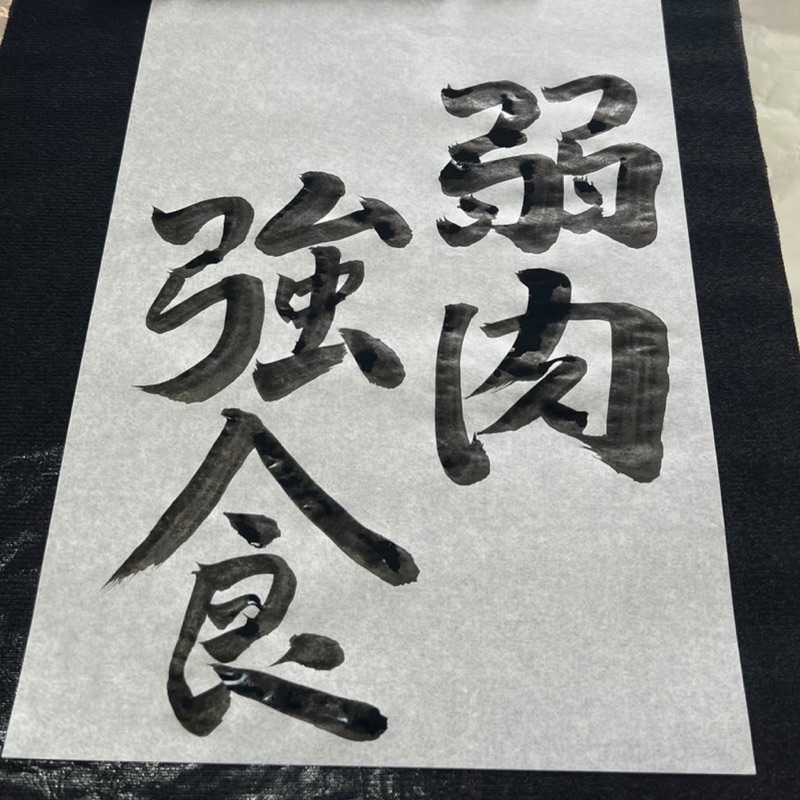 弱肉
強食